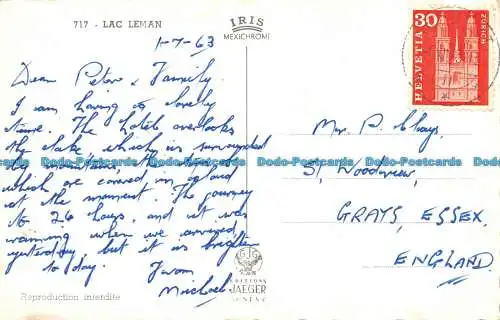 717 - LAC LEMAN
IRIS
MEXICHROME
1-7-63
Dear Peter & Family.
I am having a lovely
time. The hotel overlooks
the lake, which is surrounded
by mountains,
which are covered in cloud
at the moment. The journey
26 hours, and it was
raining when we arrived
yesterday, but it is brighter
to day. From
Michael
Reproduction interdite
EDITIONS
JAEGER
GENÈVE
30
HELVETIA
ZÜRICH
Mr. P.
51, Woodview,
GRAYS, ESSEX,
ENGLAND.
Dodo-Postcards Dodo-Postcards Dodo-Postcards Dodo-Postcards